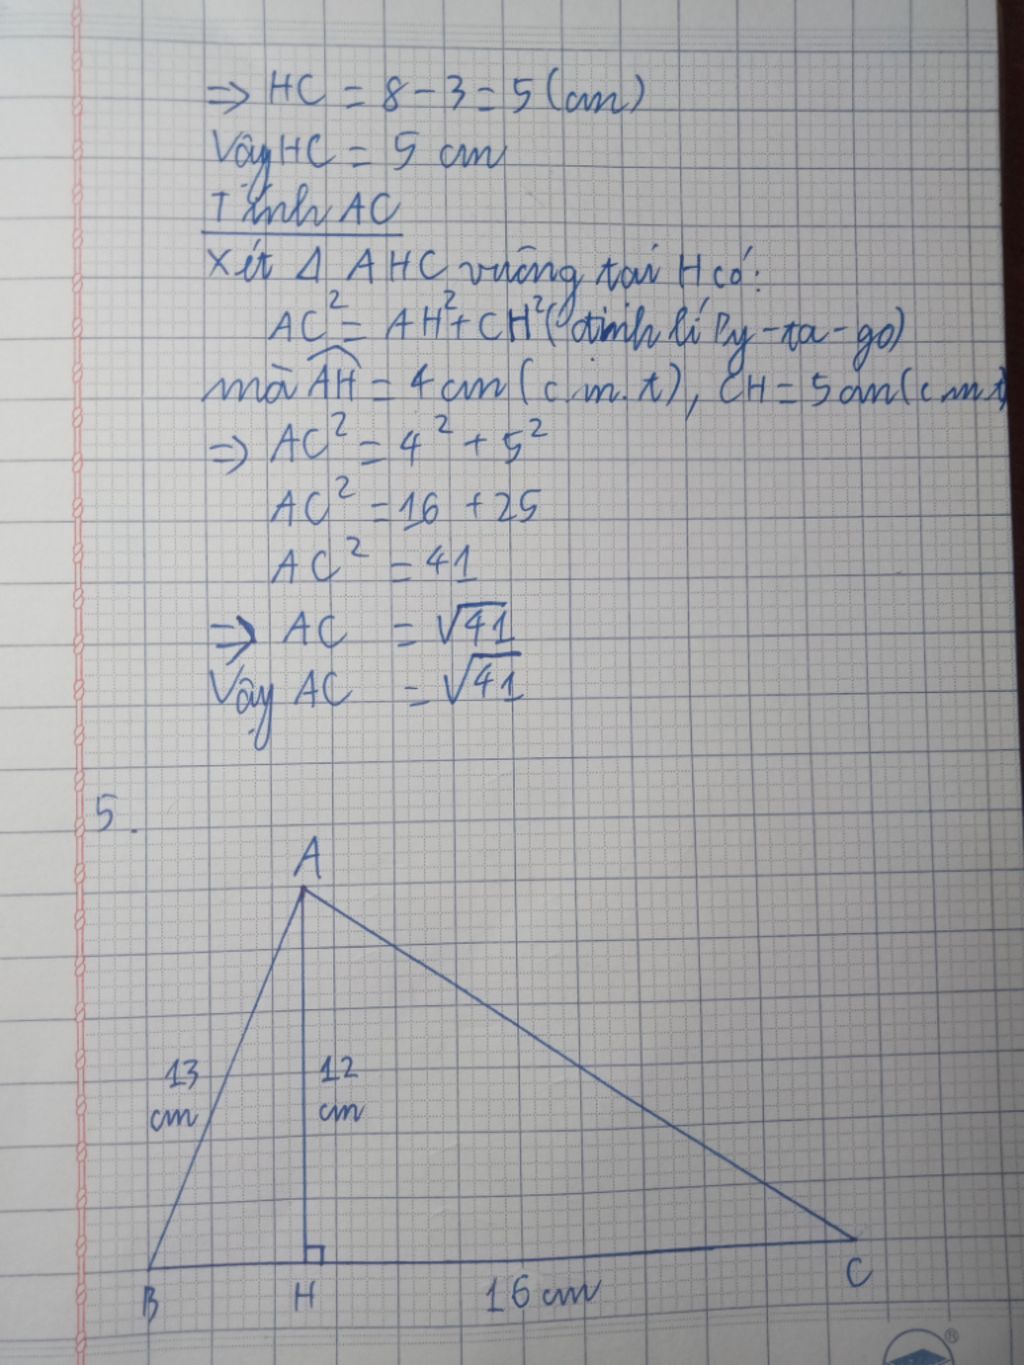 ⇒ HC = 8 - 3 = 5 (cm)
Vậy HC = 5 cm
Tính AC
Xét Δ AHC vuông tại H có:
AC² = AH² + CH² (định lí Py-ta-go)
mà AH = 4 cm (c.m.t), CH = 5 cm (c.m.t)
⇒ AC² = 4² + 5²
AC² = 16 + 25
AC² = 41
⇒ AC = √41
Vậy AC = √41
5.
A
13
cm
12
cm
B
H
16 cm
C
®